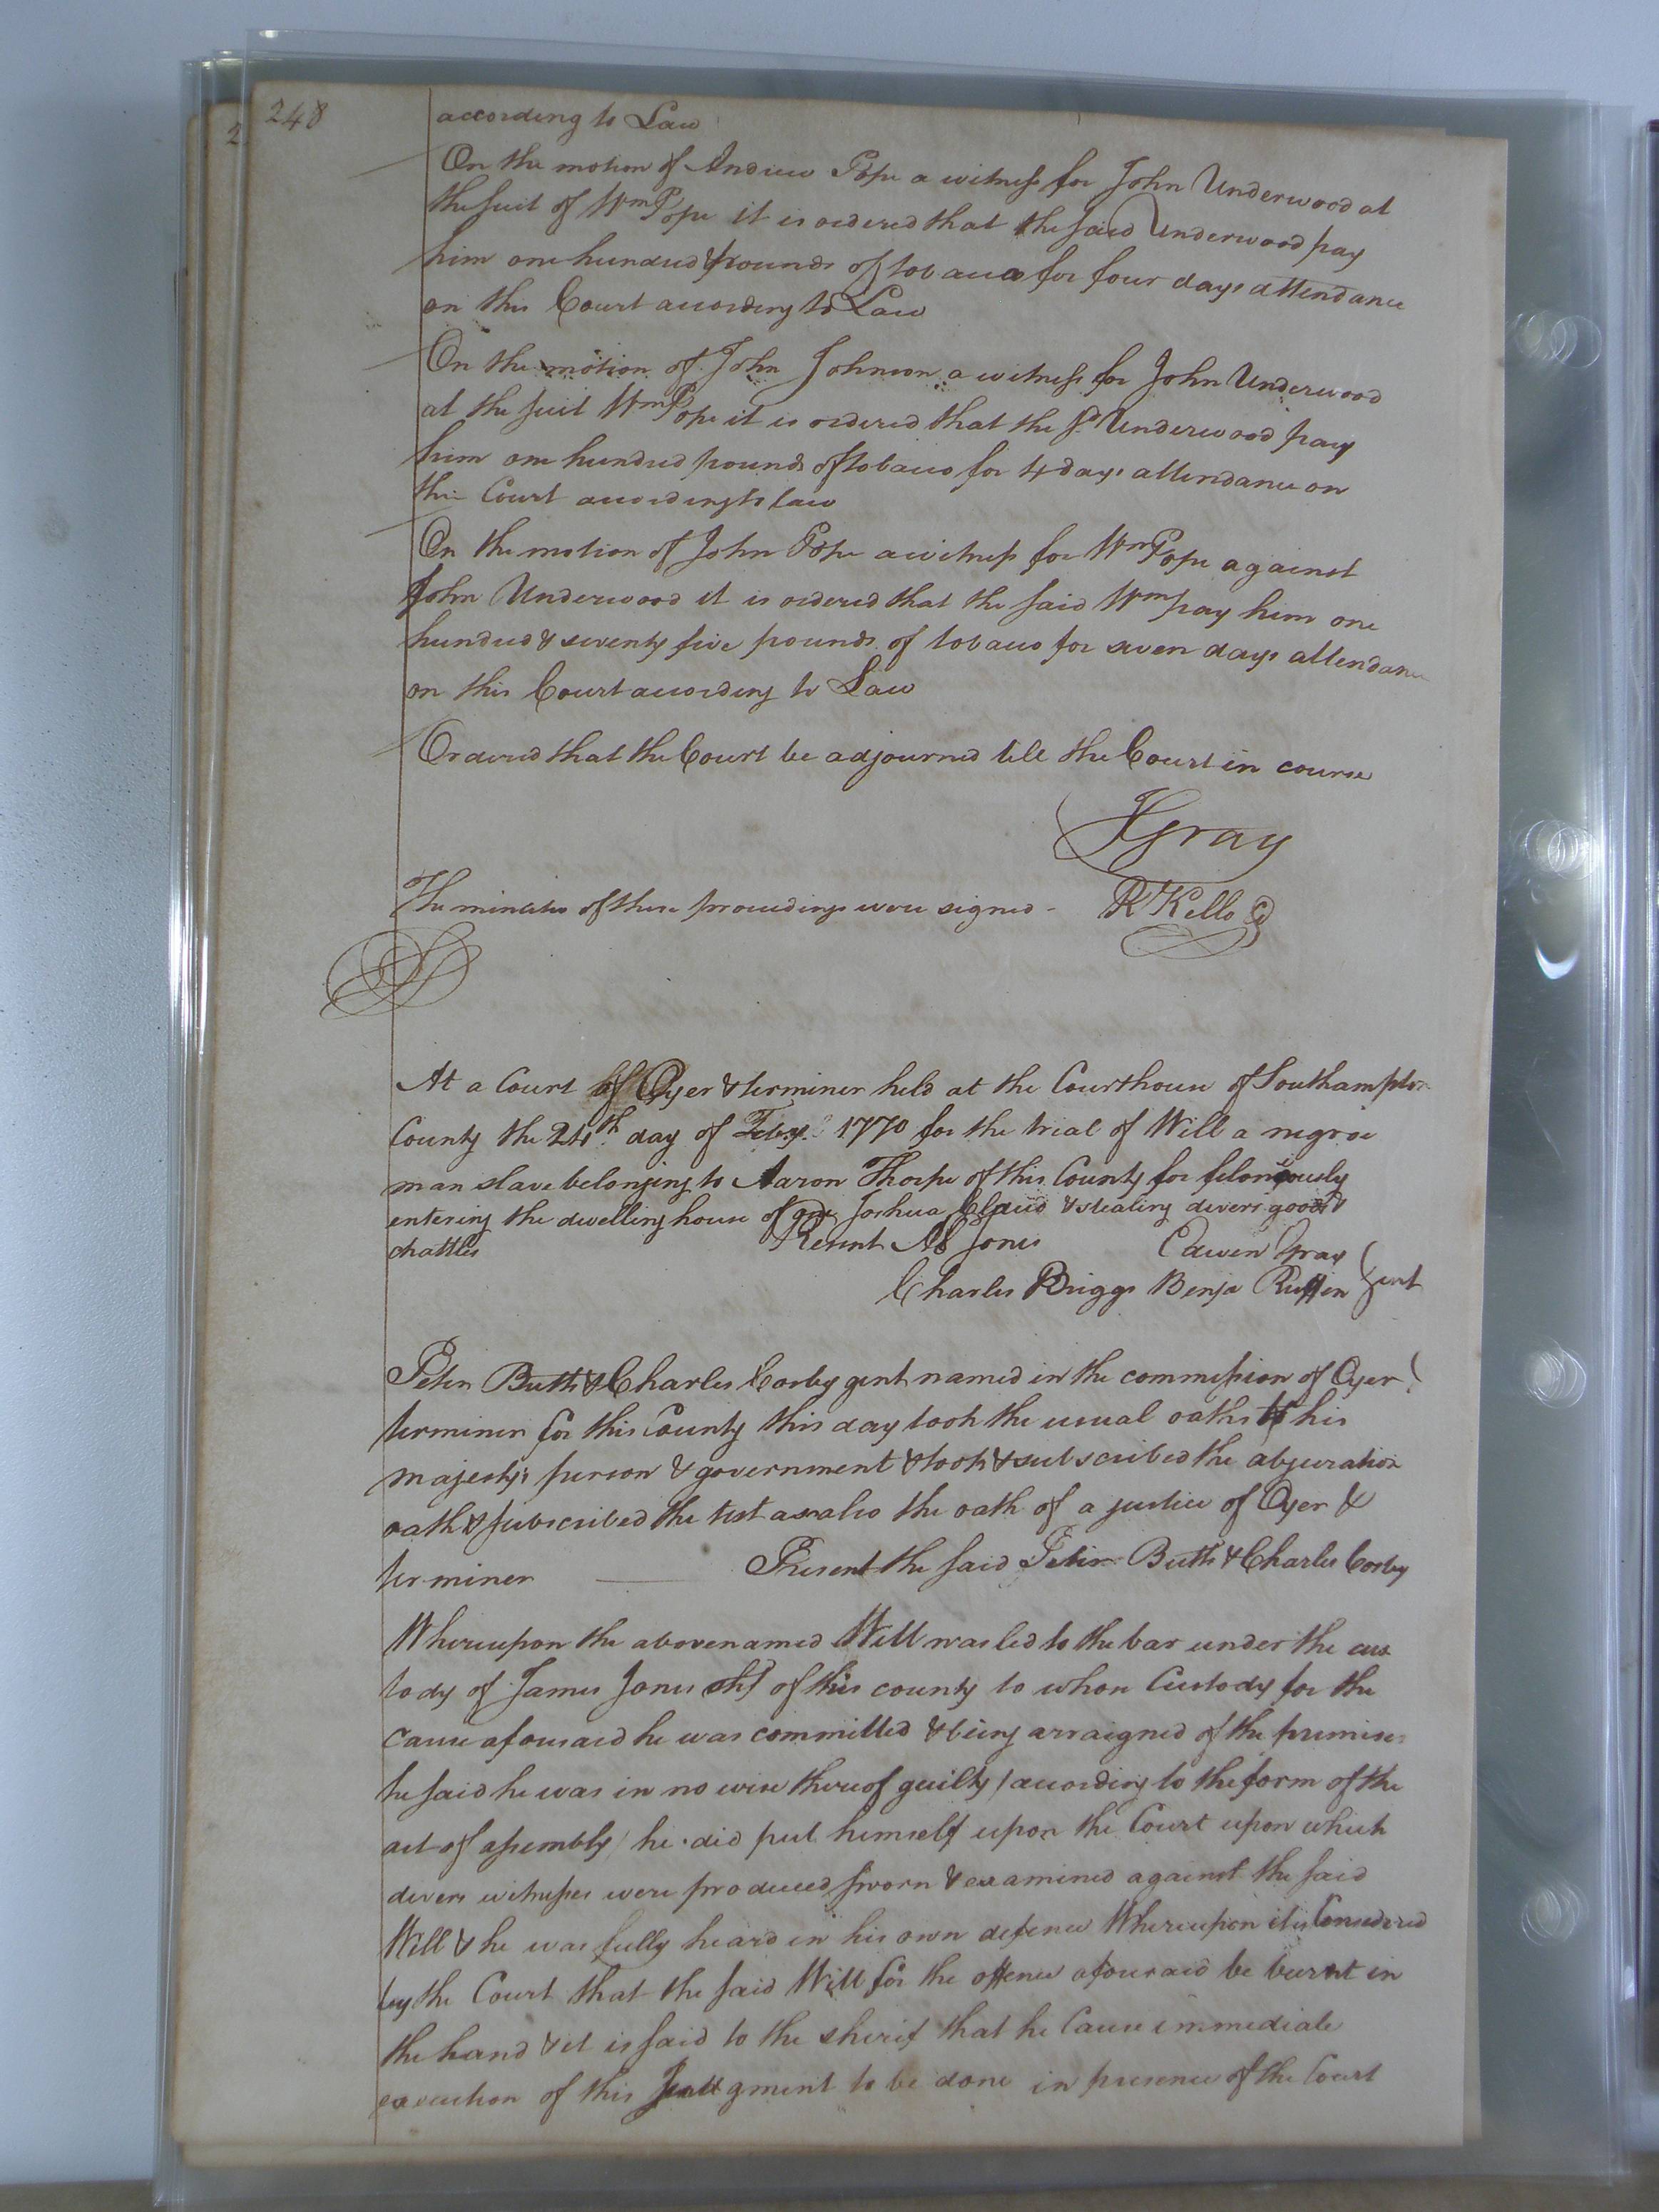 248
2
according to Law
On the motion of Andrew Pope a witness for John Underwood at
the suit of Wm Pope it is ordered that the said Underwood pay
him one hundred pounds of tobacco for four days attendance
on this Court according to Law
On the motion of John Johnson a witness for John Underwood
at the suit Wm Pope it is ordered that the sd Underwood pay
him one hundred pounds of tobacco for 4 days attendance on
this Court according to law
On the motion of John Pope a witness for Wm Pope against
John Underwood it is ordered that the said Wm pay him one
hundred & seventy five pounds of tobacco for seven days attendance
on this Court according to Law
Ordered that the Court be adjourned till the Court in course
JGray
The minutes of these proceedings were signed - R Kello
At a Court of Oyer & terminer held at the Courthouse of Southampton
County the 24th day of Feby 1770 for the trial of Will a negroe
man slave belonging to Aaron Thorpe of this County for feloniously
entering the dwelling house of Joshua Claud & stealing divers goods &
chattles Present Ab Jones Edwin Gray
Charles Briggs Benja Ruffin Gent
Peter Butts & Charles Cosby gent named in the commission of Oyer &
terminer for this County this day took the usual oaths to his
majesty's person & government & took & subscribed the abjuration
oath & subscribed the test as also the oath of a justice of Oyer &
terminer Present the said Peter Butts & Charles Cosby
Whereupon the abovenamed Will was led to the bar under the cus
tody of James Jones shf of this county to whom Custody for the
cause aforesaid he was committed & being arraigned of the premises
he said he was in no wise thereof guilty / according to the form of the
act of assembly / he did put himself upon the Court upon which
divers witnesses were produced sworn & examined against the said
Will & he was fully heard in his own defence Whereupon it is Considered
by the Court that the said Will for the offence aforesaid be burnt in
the hand & it is said to the sherif that he Cause immediate
execution of this Judgment to be done in presence of the Court